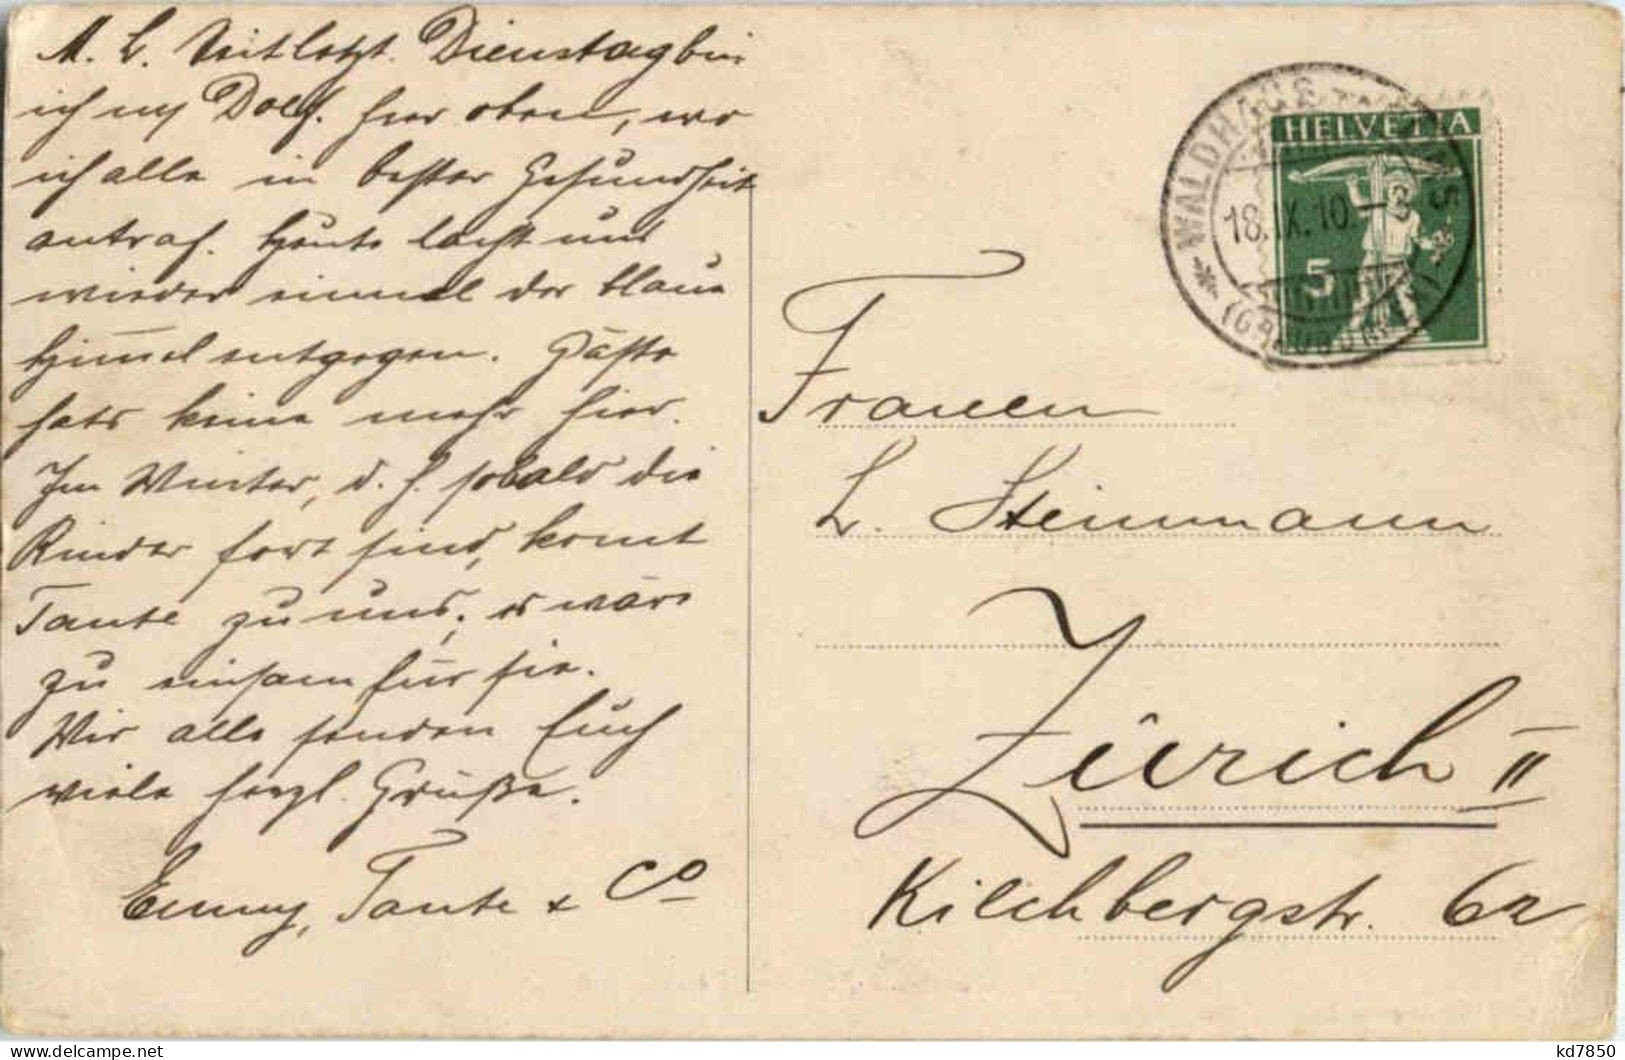 M. L. Seit letzt. Dienstag bin
ich m Dolf. hier oben, wo
ich alle in bester Gesundheit
antraf. Heute lacht uns
wieder einmal der blaue
Himmel entgegen. Gäste
hats keine mehr hier.
Im Winter, d. h. sobald die
Kinder fort sind, komt
Tante zu uns; es wäre
zu einsam für sie.
Wir alle senden Euch
viele herzl. Grüße.
Emmy, Tante & Co
HELVETIA
5
WALDHAUS
18.IX.10.
(GRAUBÜNDEN)
Frauen
L. Steinmann
Zürich II
Kilchbergstr. 62
kd7850